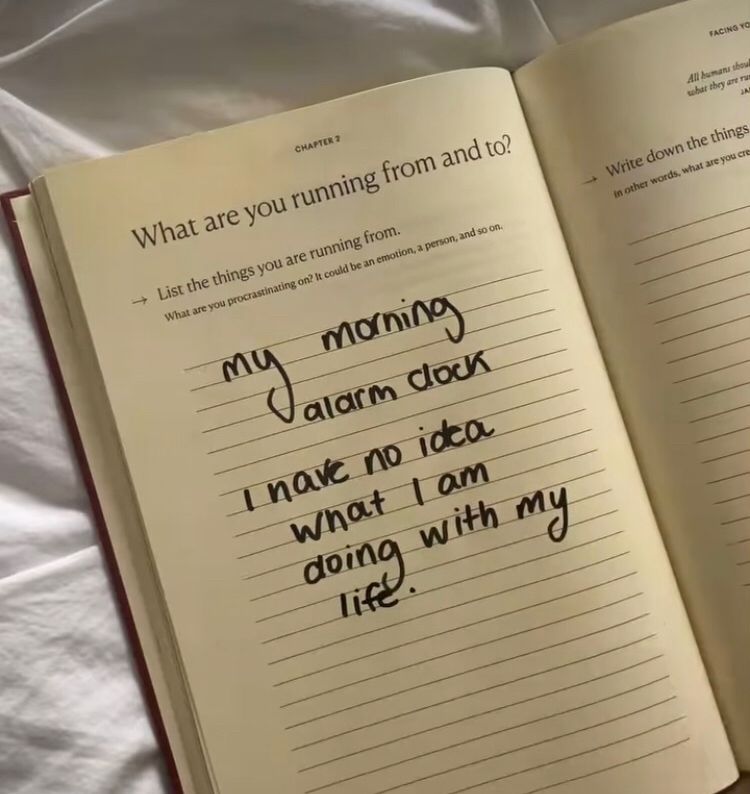 CHAPTER 2
What are you running from and to?
→ List the things you are running from.
What are you procrastinating on? It could be an emotion, a person, and so on.
my morning
alarm clock
I have no idea
what I am
doing with my
life.
FACING
All humans
what they are
→ Write down the things
In other words, what are you